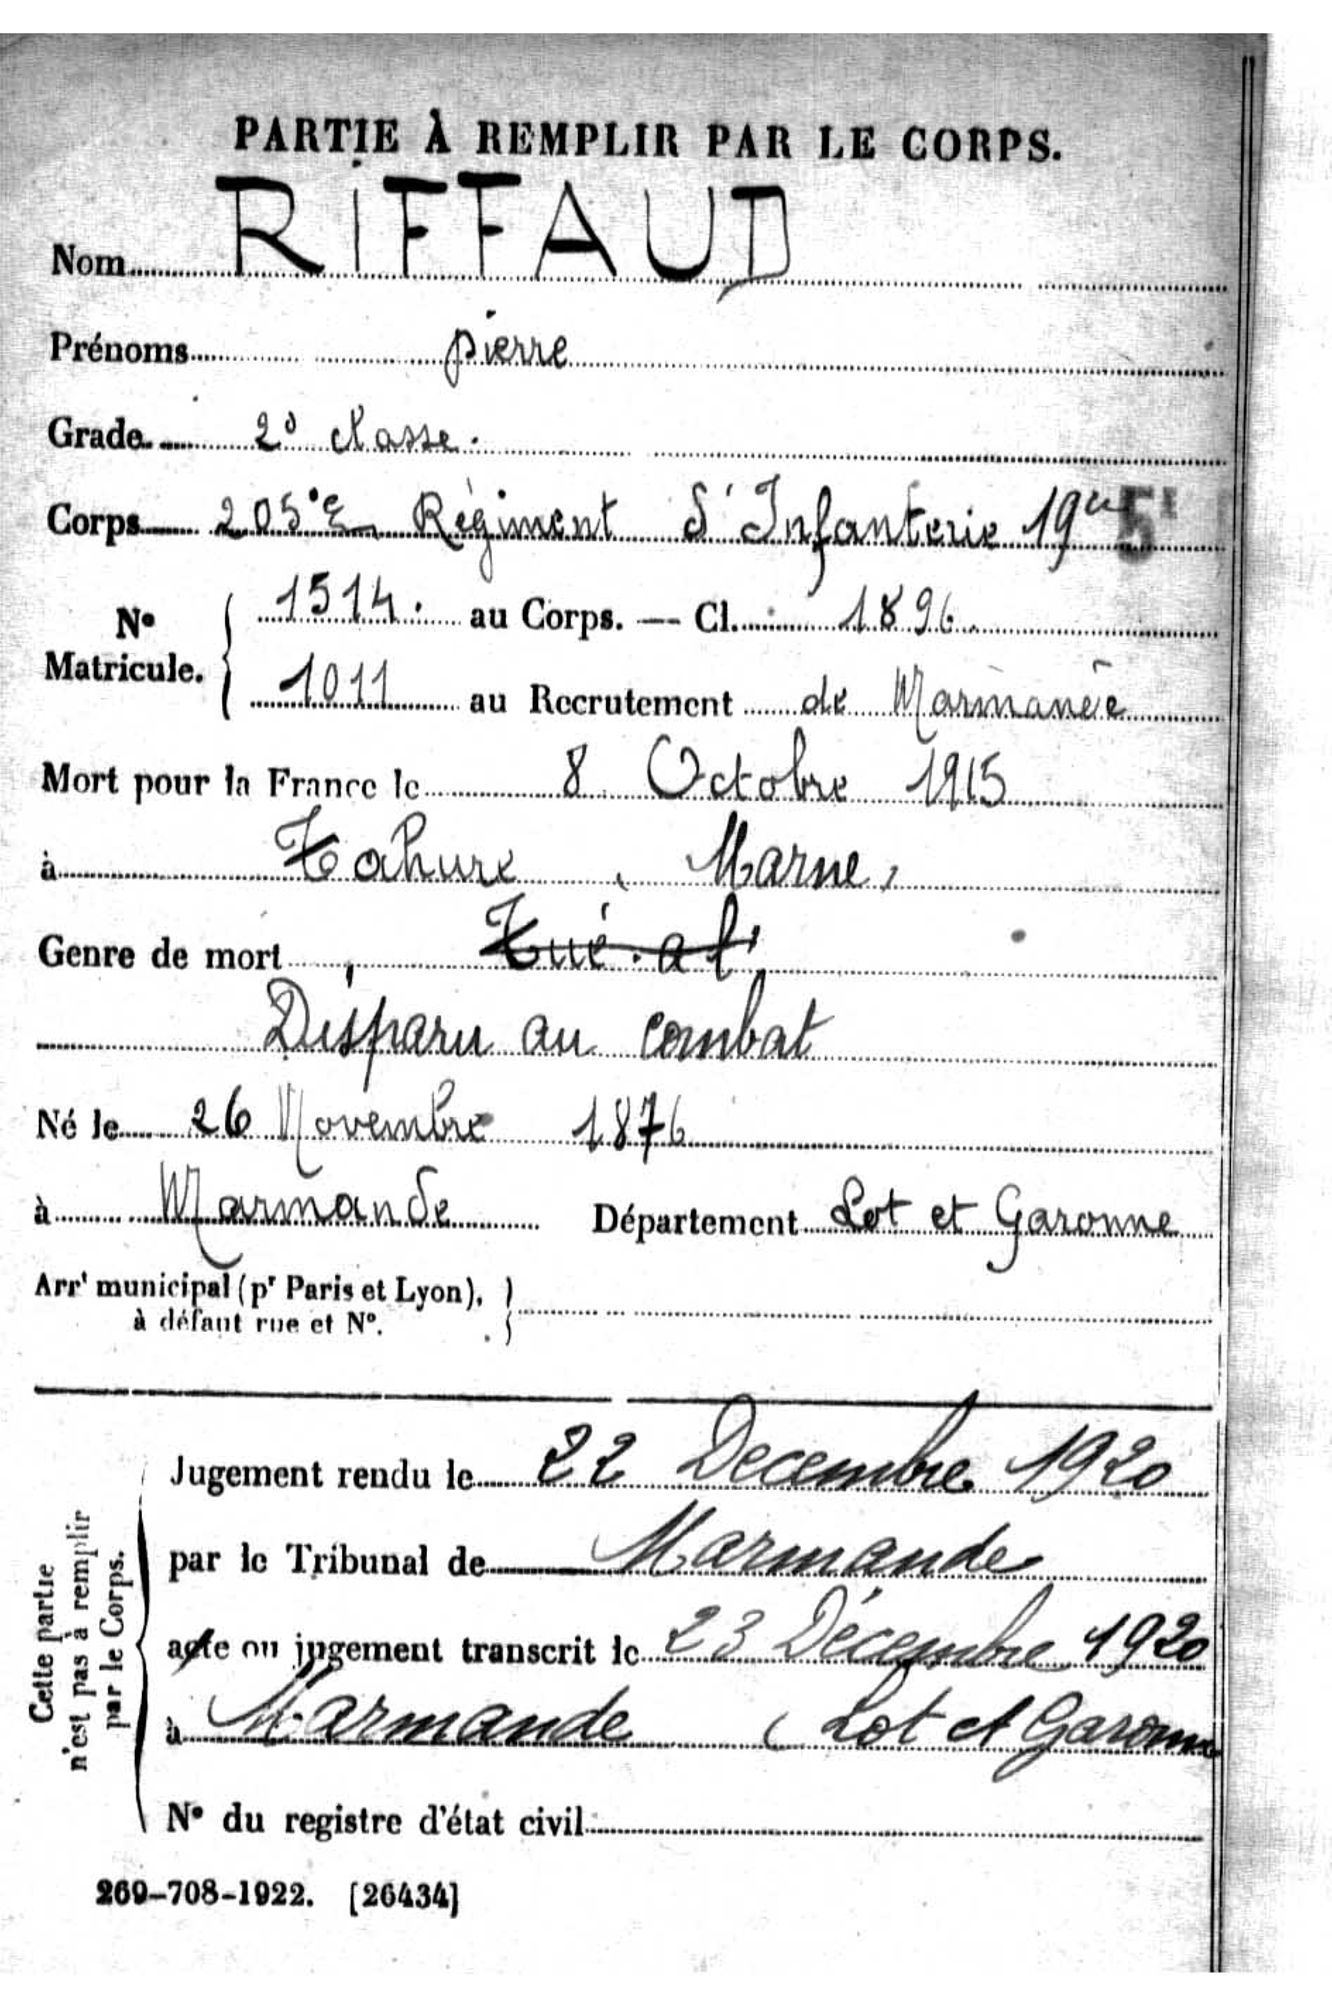 PARTIE À REMPLIR PAR LE CORPS.
Nom RIFFAUD
Prénoms pierre
Grade 2e classe.
Corps 205e Régiment d'Infanterie 19 5t
No Matricule. 1514. au Corps. — Cl. 1896.
1011 au Recrutement de
Mort pour la France le 8 Octobre 1915
à Tahure, Marne,
Genre de mort Tué à l'
Disparu au combat
Né le 26 Novembre 1876
à Marmande Département Lot et Garonne
Arrt municipal (pr Paris et Lyon),
à défaut rue et No.
Jugement rendu le 22 Decembre 1920
par le Tribunal de Marmande
acte ou jugement transcrit le 23 Décembre 1920
à Marmande (Lot et Garonne
No du registre d'état civil
Cette partie
n'est pas à remplir
par le Corps.
269-708-1922. [26434]